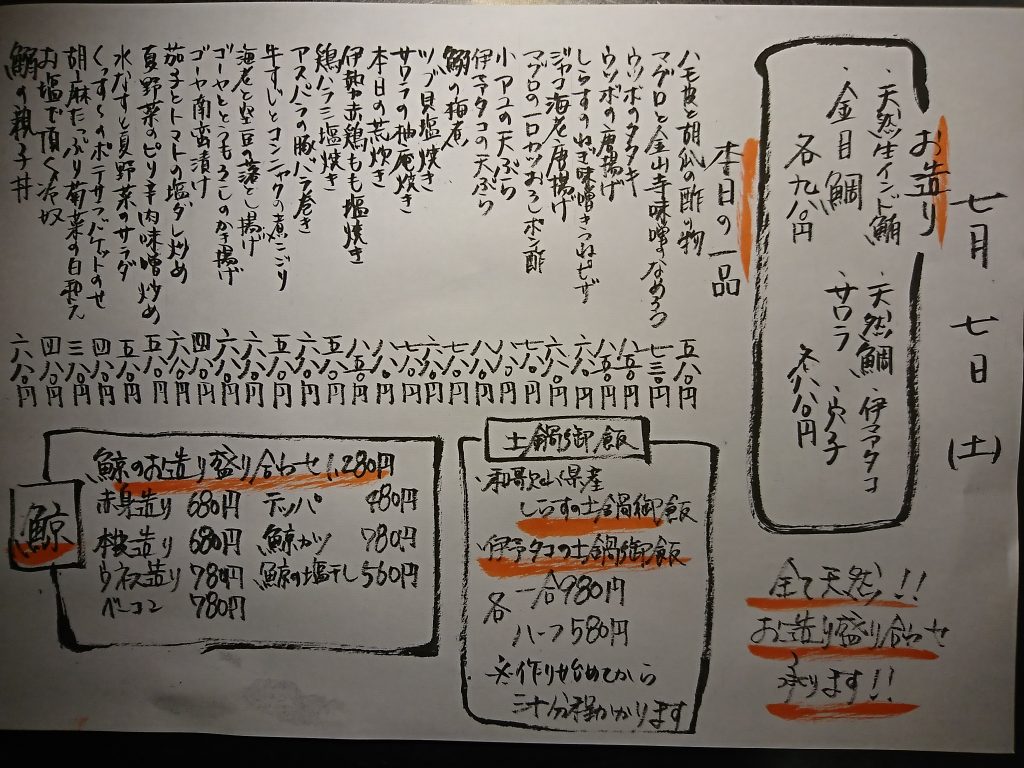 七月 七日 (土)
お造り
・天然生インド鮪 ・天然鯛 ・伊予タコ
・金目鯛 ・サワラ ・穴子
各九八〇円 各八八〇円
本日の一品
ハモ皮と胡瓜の酢の物 五八〇円
マグロと金山寺味噌のなめろう 七三〇円
ウツボのタタキ 八五〇円
ウツボの唐揚げ 八五〇円
しらすのねぎ味噌きつねピザ 六八〇円
ジャコ海老唐揚げ 六八〇円
マグロの一口カツおろしポン酢 七八〇円
小アユの天ぷら 八八〇円
伊予タコの天ぷら 八八〇円
鰯の梅煮 七八〇円
ツブ貝塩焼き 六八〇円
サワラの柚庵焼き 七八〇円
本日の荒炊き 八八〇円
伊勢赤鶏もも塩焼き 八五〇円
鶏ハラミ塩焼き 八八〇円
アスパラの豚バラ巻き 六八〇円
牛すじとコンニャクの煮こごり 五八〇円
海老と空豆の落とし揚げ 六八〇円
ゴーヤととうもろこしのかき揚げ 六八〇円
ゴーヤ南蛮漬け 四八〇円
茄子とトマトの塩ダレ炒め 六八〇円
夏野菜のピリ辛肉味噌炒め 五八〇円
水なすと夏野菜のサラダ 五八〇円
くっす〜のポテサラバケットのせ 四八〇円
胡麻たっぷり菊菜の白和え 三八〇円
お塩で頂く冷奴 四八〇円
鰯の親子丼 六八〇円
全て天然!!
お造り盛り合わせ
承ります!!
土鍋御飯
・和歌山県産
しらすの土鍋御飯
・伊予タコの土鍋御飯
各 一合980円
ハーフ580円
※作り始めてから
三十分程かかります
鯨
鯨のお造り盛り合わせ 1,280円
赤身造り 680円 テッパ 480円
本皮造り 680円 鯨カツ 780円
ウネス造り 780円 鯨の塩干し 560円
ベーコン 780円